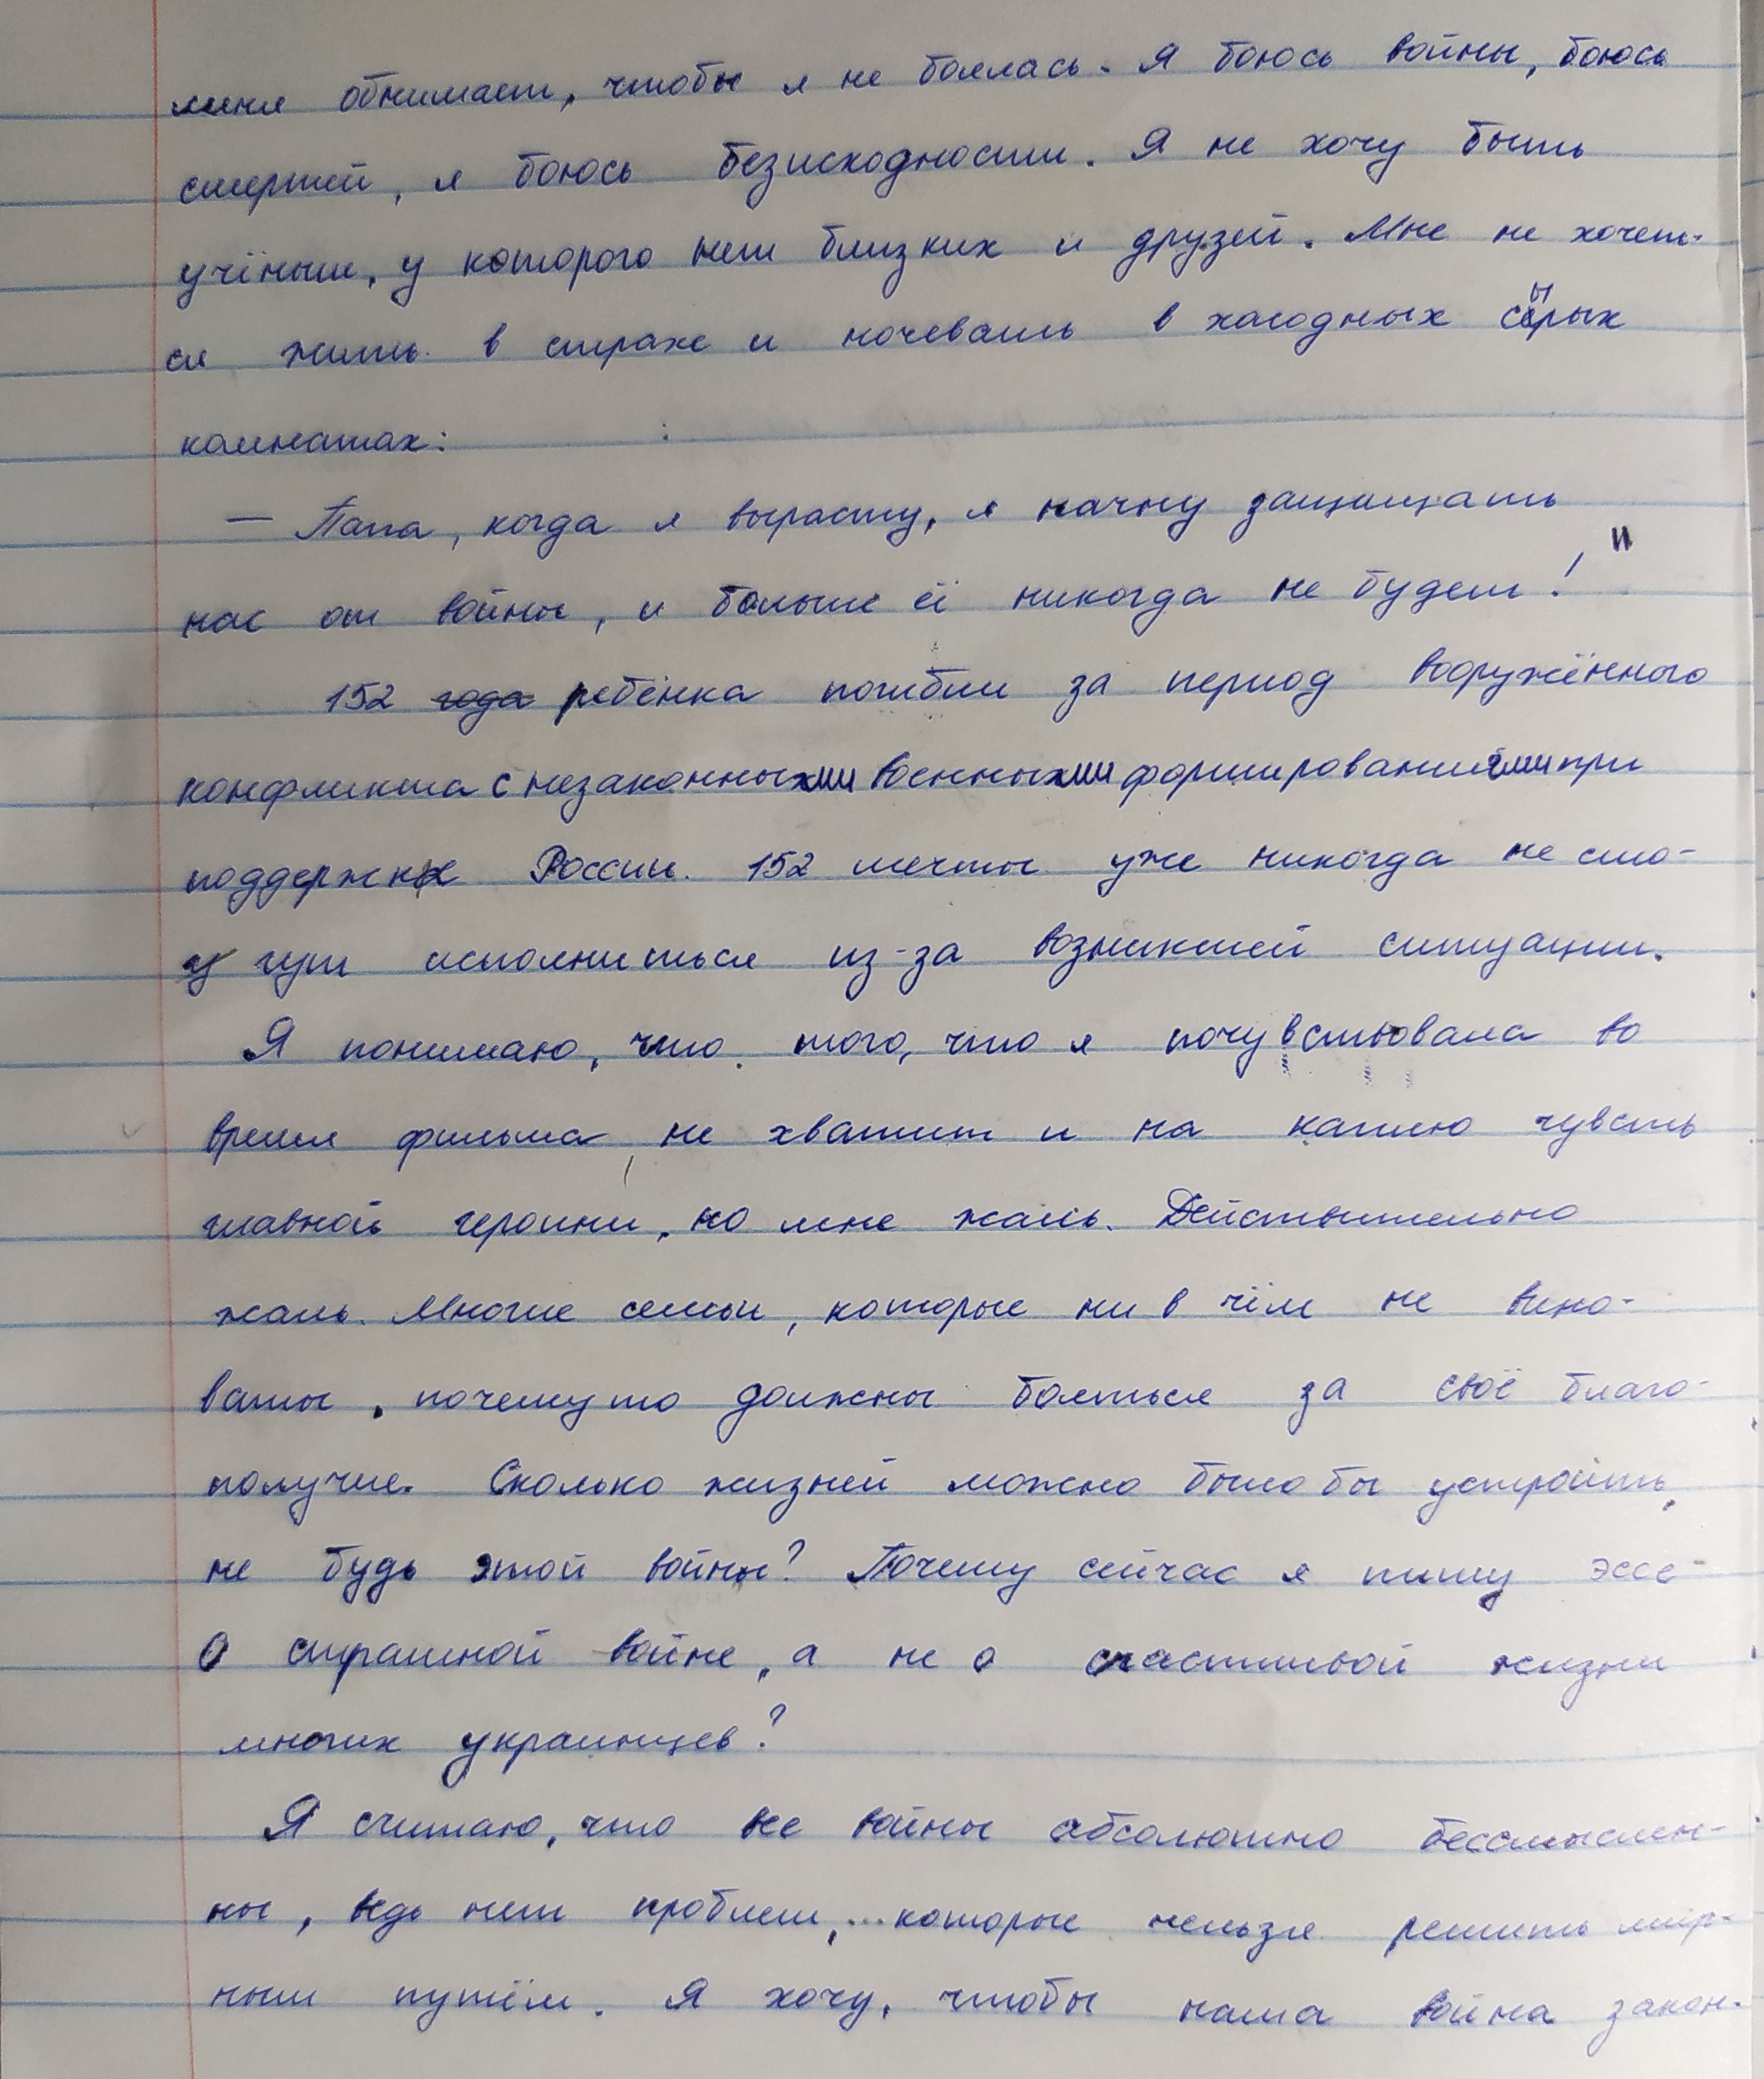 меня обнимает, чтобы я не боялась. Я боюсь войны, боюсь
смертей, я боюсь безисходности. Я не хочу быть
учёным, у которого нет близких и друзей. Мне не хочет-
ся жить в страхе и ночевать в холодных сырых
комнатах:
— Папа, когда я вырасту, я начну защищать
нас от войны, и больше её никогда не будет! "
152 года ребёнка погибли за период вооружённого
конфликта с незаконными военными формированиями при
поддержке России. 152 мечты уже никогда не смо-
гут исполниться из-за возникшей ситуации.
Я понимаю, что того, что я почувствовала во
время фильма, не хватит и на каплю чувств
главной героини, но мне жаль. Действительно
жаль. Многие семьи, которые ни в чём не вино-
ваты, почему то должны бояться за своё благо-
получие. Сколько жизней можно было бы устроить,
не будь этой войны? Почему сейчас я пишу эссе
о страшной войне, а не о счастливой жизни
многих украинцев?
Я считаю, что все войны абсолютно бессмыслен-
ны, ведь нет проблем, которые нельзя решить мир-
ным путём. Я хочу, чтобы наша война закон-